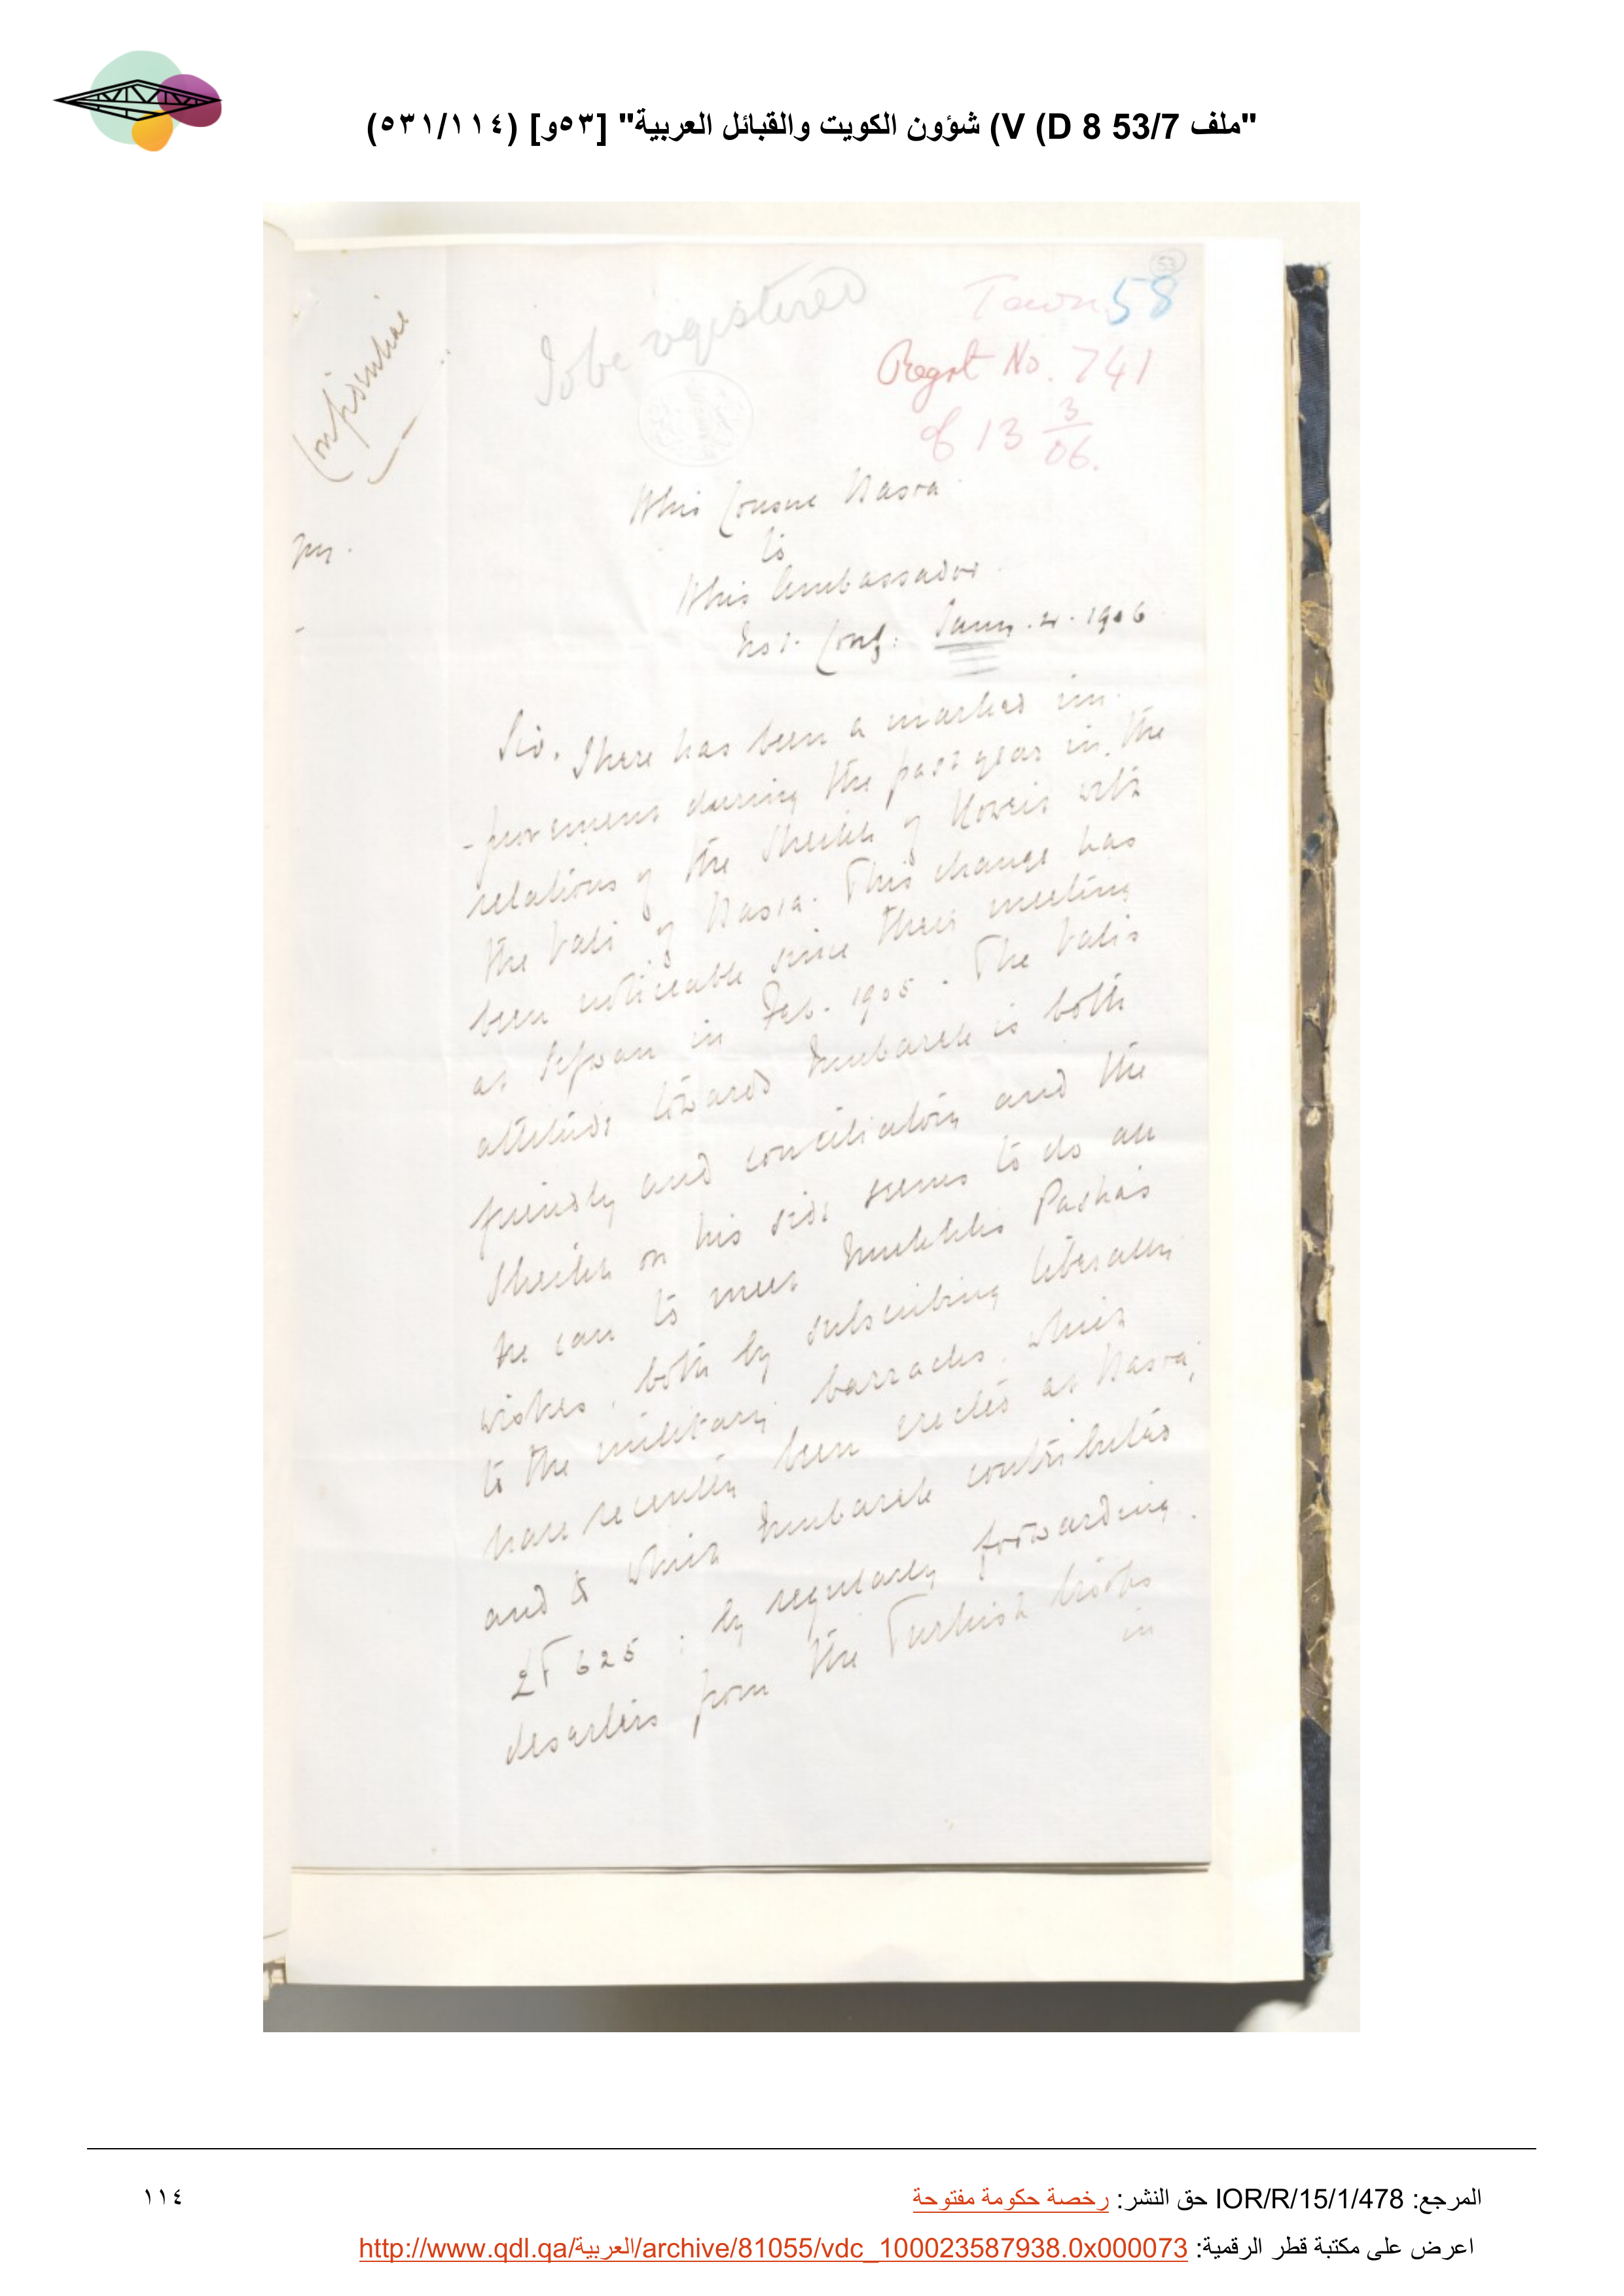 "ملف 53/7 V (D 8) شؤون الكويت والقبائل العربية" [٥٣و] (٥٣١/١١٤)
53
Town 58
To be registered
Regst No. 741
of 13 3/06.
Confidential
HMs Consul Basra
to
HMs Ambassador
No 1. Conf: Jany. 4. 1906
Sir, There has been a marked im-
-provement during the past year in the
relations of the Sheikh of Koweit with
the Vali of Basra. This change has
been noticeable since their meeting
at Sefwan in Feb. 1905. The Vali's
attitude towards Mubarek is both
friendly and conciliatory and the
Sheikh on his side seems to do all
he can to meet Mukhlis Pasha's
wishes, both by subscribing liberally
to the military barracks, which
have recently been erected at Basra,
and to which Mubarek contributed
£T 625; by regularly forwarding
deserters from the Turkish troops
in
المرجع: IOR/R/15/1/478 حق النشر: رخصة حكومة مفتوحة
١١٤
اعرض على مكتبة قطر الرقمية: http://www.qdl.qa/العربية/archive/81055/vdc_100023587938.0x000073